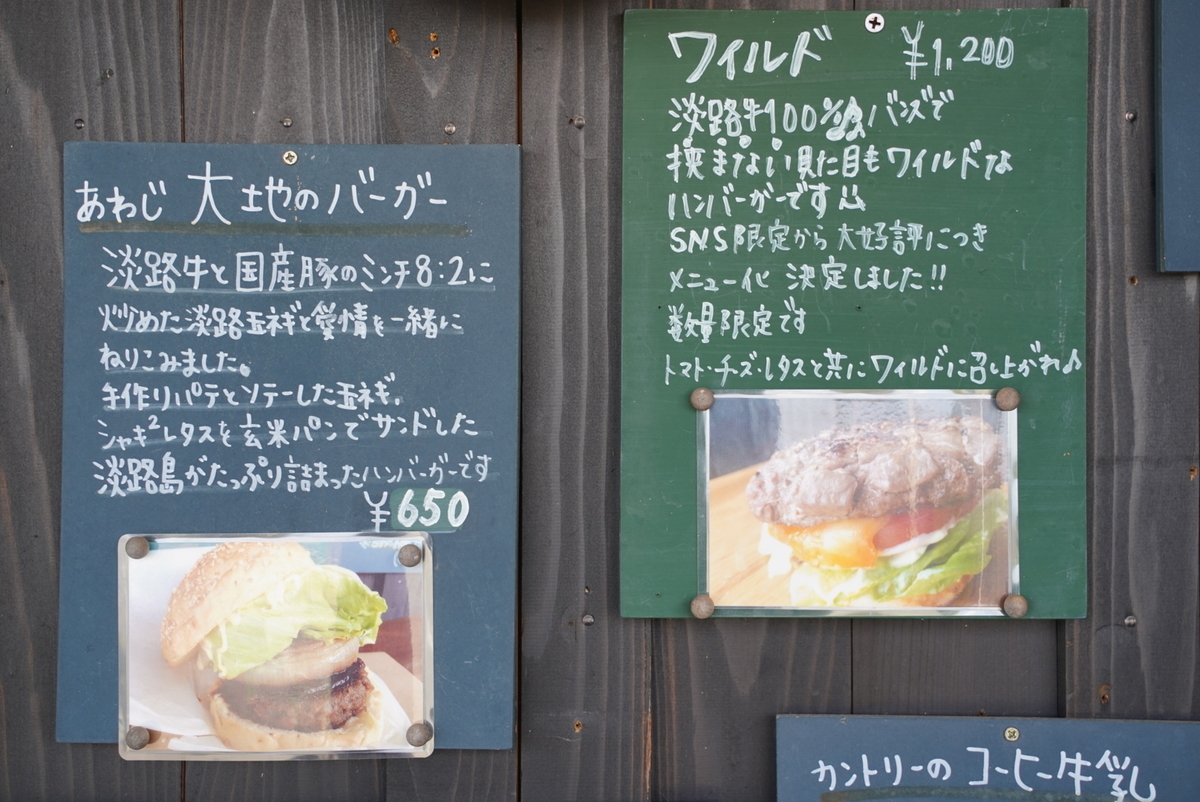 あわじ 大地のバーガー
淡路牛と国産豚のミンチ8:2に
炒めた淡路玉ネギと愛情を一緒に
ねりこみました。
手作りパテとソテーした玉ネギ。
シャキ²レタスを玄米パンでサンドした
淡路島がたっぷり詰まったハンバーガーです
¥650
ワイルド ¥1,200
淡路牛100% バンズで
挟まない見た目もワイルドな
ハンバーガーです
SNS限定から大好評につき
メニュー化 決定しました!!
数量限定です
トマト・チーズ・レタスと共にワイルドに召し上がれ♪
カントリーの コーヒー牛乳